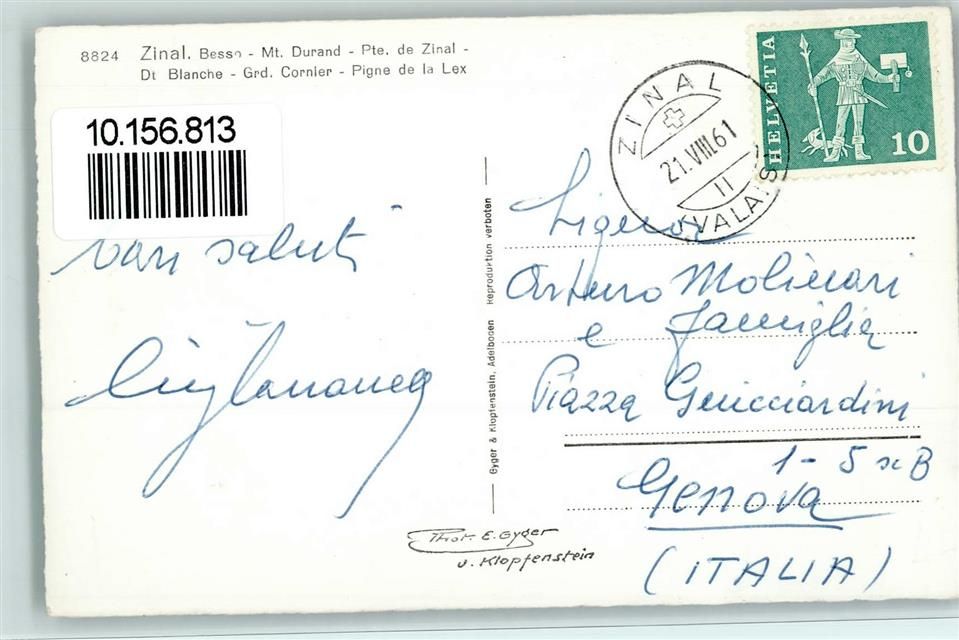 8824 Zinal. Besso - Mt. Durand - Pte. de Zinal -
Dt Blanche - Grd. Cornier - Pigne de la Lex
10.156.813
vari saluti
Gyger & Klopfenstein, Adelboden Reproduktion verboten
Phot. E. Gyger
u. Klopfenstein
ZINAL
21.VIII.61
11
(VALAIS)
HELVETIA
10
Signor
Arturo Molinari
e famiglia
Piazza Guicciardini
1-5 B
Genova
(ITALIA)